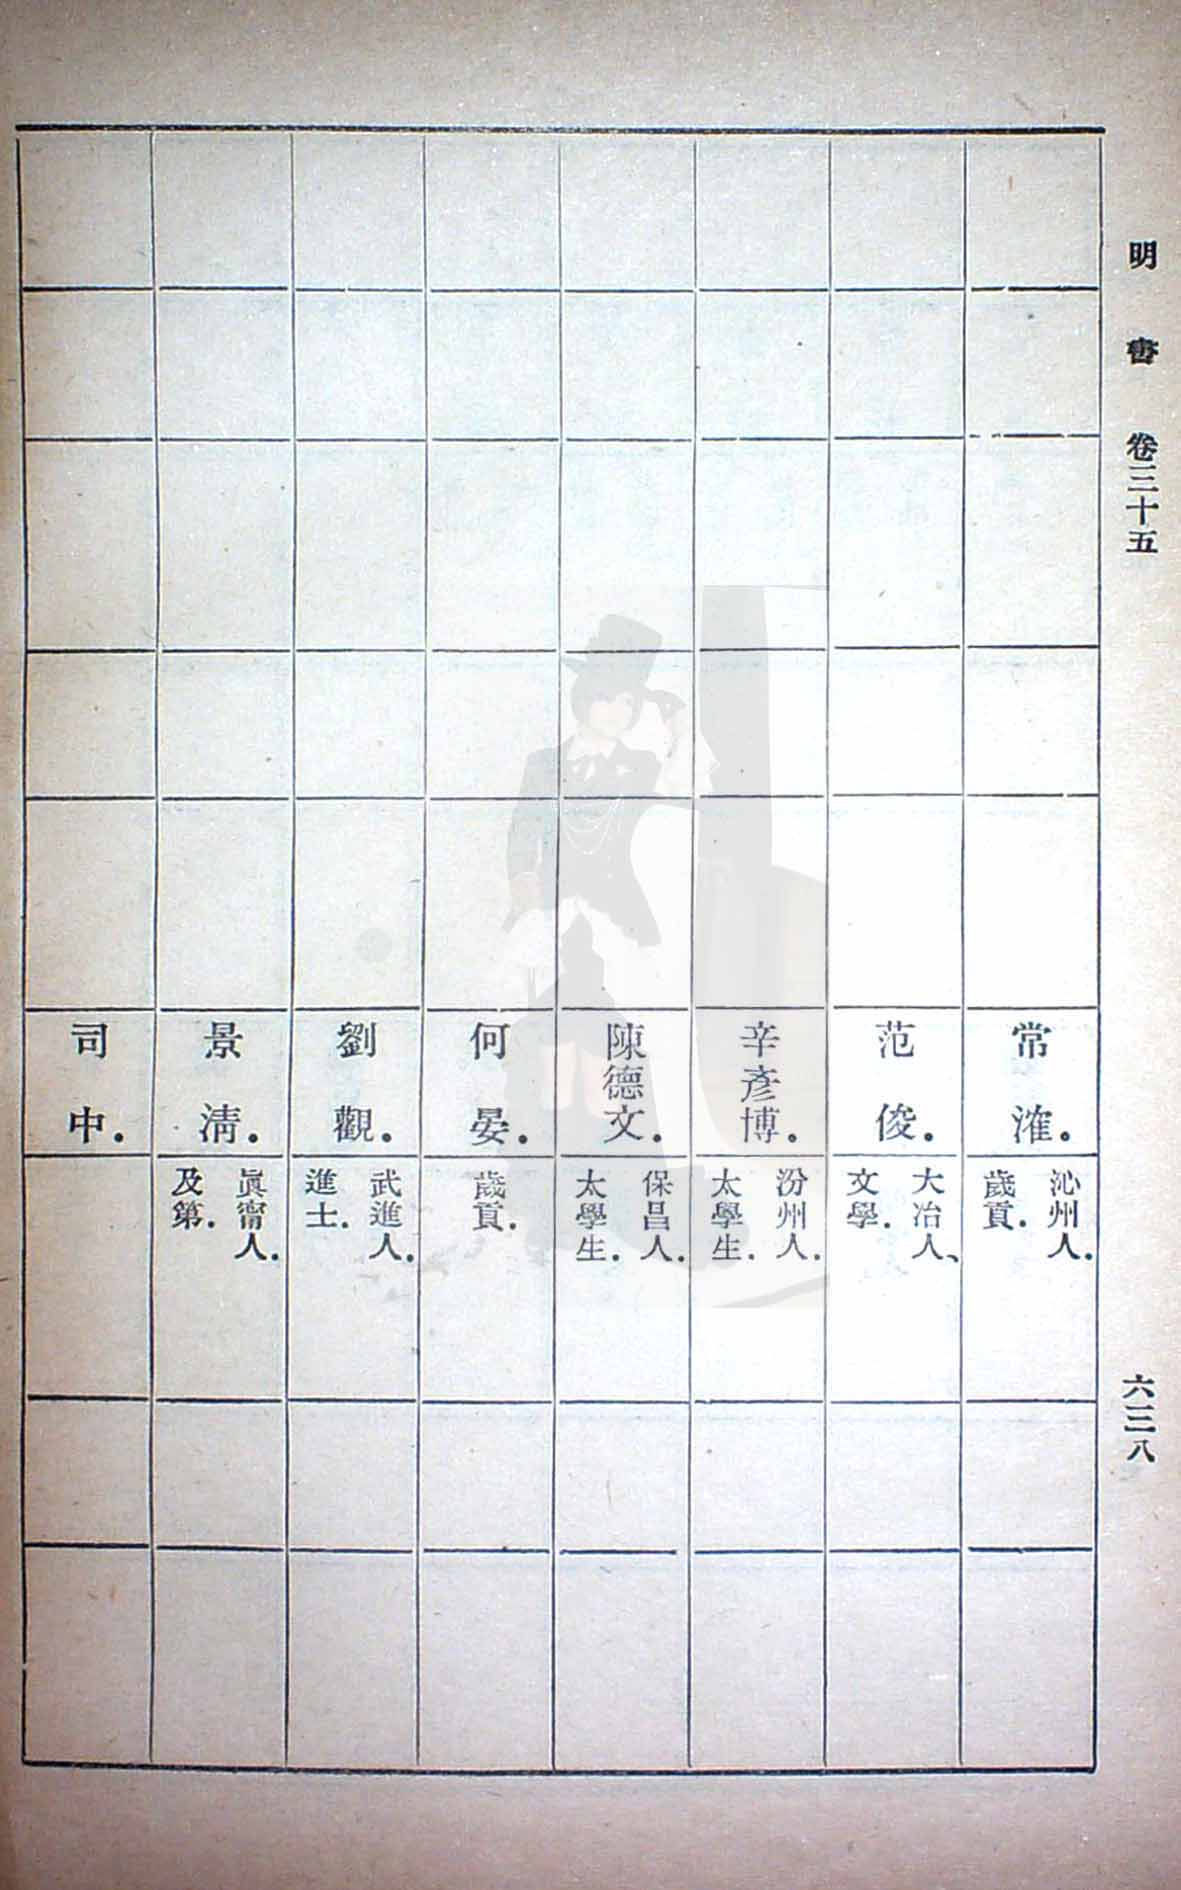 明書 卷三十五
六三八
常潅.
沁州人.
歲貢.
范俊.
大冶人、
文學.
辛彥博.
汾州人.
太學生.
陳德文.
保昌人.
太學生.
何晏.
歲貢.
劉觀.
武進人.
進士.
景淸.
眞甯人.
及第.
司中.